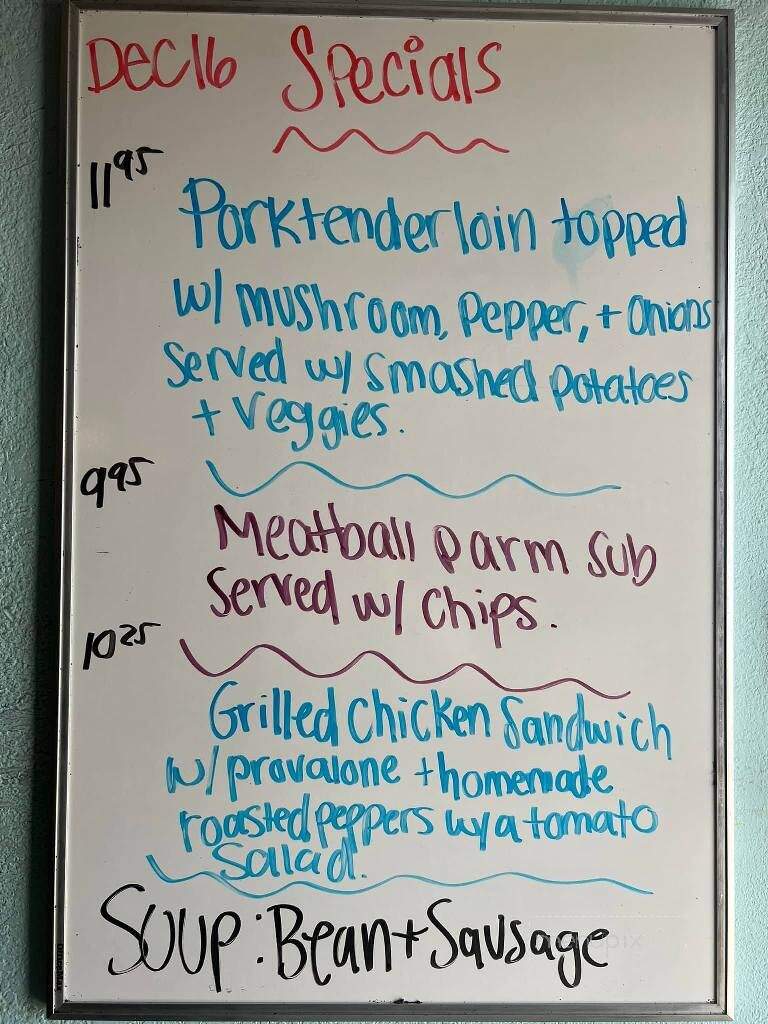 Dec 16 Specials
11 95
Porktenderloin topped
w/ mushroom, Pepper, + onions
Served w/ Smashed potatoes
+ Veggies.
9 95
Meatball parm sub
Served w/ chips.
10 25
Grilled Chicken Sandwich
w/ provalone + homemade
roasted peppers w/ a tomato
Salad.
Soup: Bean + Sausage